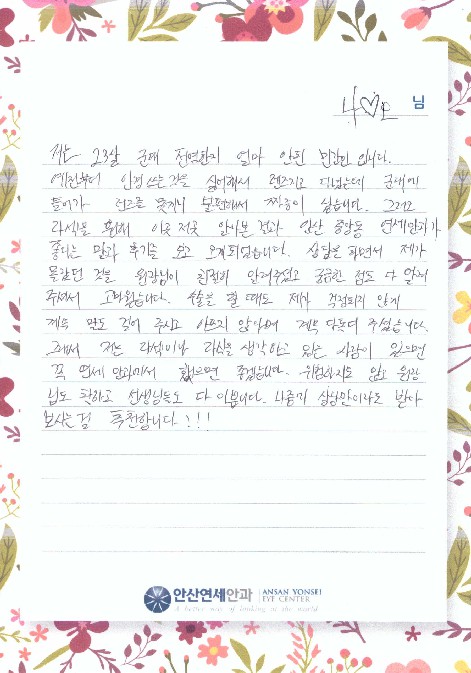 님
저는 23살 군대 전역한지 얼마 안된 민간인 입니다.
예전부터 안경 쓰는것을 싫어해서 렌즈끼고 다녔는데 군대에
들어가 렌즈를 못끼니 불편해서 짜증이 났습니다. 그리고
라섹을 위해 이곳 저곳 알아본 결과 안산 중앙동 연세안과가
좋다는 말과 후기를 보고 오게되었습니다. 상담을 하면서 제가
몰랐던 것을 원장님이 친절히 알려주셨고 궁금한 점도 다 알려
주셔서 고마웠습니다. 수술을 할 때도 제가 걱정되지 않게
계속 말도 걸어 주시고 아프지 않냐며 계속 다독여 주셨습니다.
그래서 저는 라섹이나 라식을 생각하고 있는 사람이 있으면
꼭 연세 안과에서 했으면 좋겠습니다. 원장
님도 착하고 선생님들도 다 이쁩니다. 상담만이라도 받아
보시는걸 추천합니다!!!
안산연세안과 ANSAN YONSEI
EYE CENTER
A better way of looking at the world